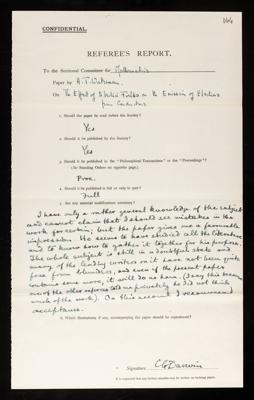 166
CONFIDENTIAL.
REFEREE'S REPORT.
To the Sectional Committee for Mathematics
Paper by A. T. Waterman
On The Effect of Electric Fields on the Emission of Electrons
from Conductors
1. Should the paper be read before the Society?
Yes
2. Should it be published by the Society?
Yes
3. Should it be published in the "Philosophical Transactions" or the "Proceedings"?
(See Standing Orders on opposite page.)
Proc.
4. Should it be published in full or only in part?
Full
5. Are any material modifications necessary?
I have only a rather general knowledge of the subject
and cannot claim that I should see mistakes in the
work for certain; but the paper gives me a favourable
impression. He seems to have studied all the literature
and to know how to gather it together for his purpose.
The whole subject is still in a doubtful state and
many of the leading writers on it have not been quite
free from blunders, and even if the present paper
contains some more, it will do no harm. (I say this because
one of the other referees told me privately he did not think
much of the work). On this account I recommend
acceptance.
6. Which illustrations, if any, accompanying the paper should be reproduced?
Signature C G Darwin
It is requested that any further remarks may be written on the